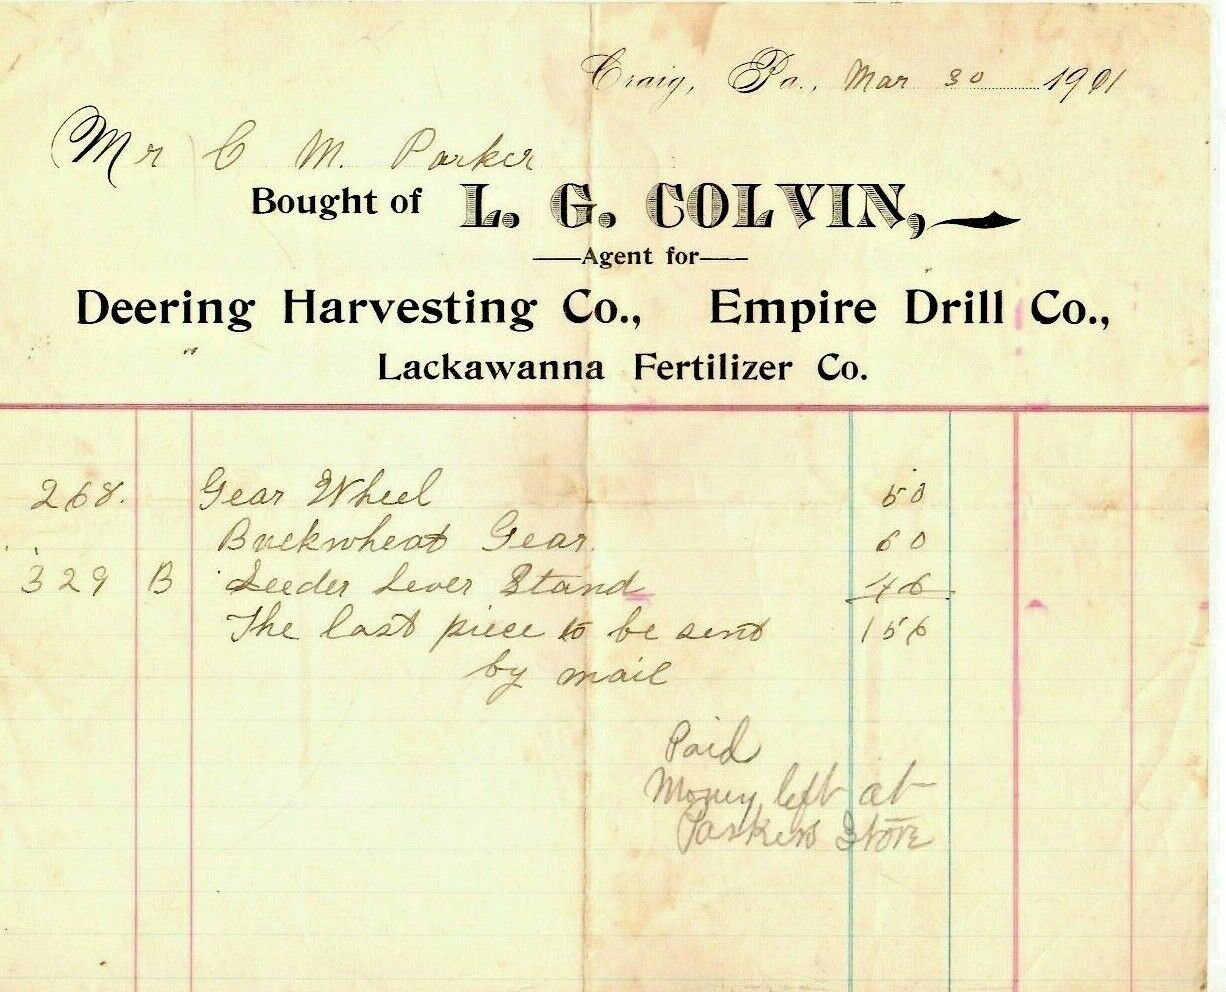 Craig, Pa., Mar 30 1901
Mr C M. Parker
Bought of L. G. COLVIN,
Agent for
Deering Harvesting Co., Empire Drill Co.,
Lackawanna Fertilizer Co.
268. Gear Wheel 50
Buckwheat Gear. 60
329 B Feeder Lever Stand 46
The last piece to be sent 156
by mail
Paid
Money left at
Parkers Store